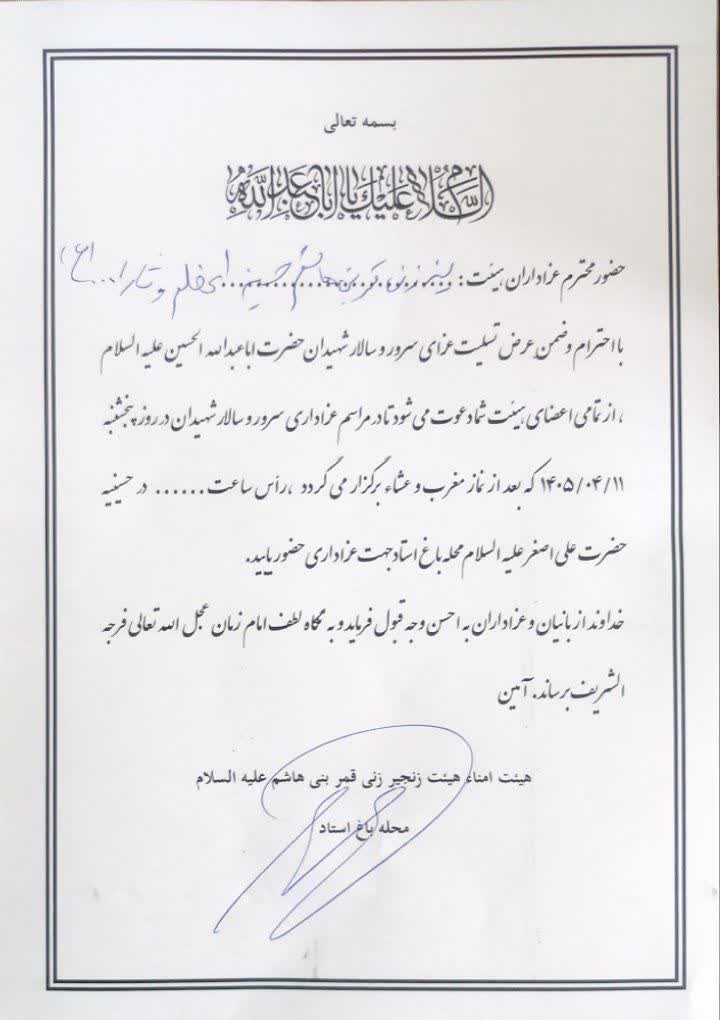 بسمه تعالی
السلام علیک یا اباعبدالله
حضور محترم عزاداران هیئت : زنجیرزنی قمر بنی هاشم حسینیه ... (ع)
با احترام و ضمن عرض تسلیت عزای سرور و سالار شهیدان حضرت اباعبدالله الحسین علیه السلام
، از تمامی اعضای هیئت شما دعوت می شود تا در مراسم عزاداری سرور و سالار شهیدان در روز پنجشنبه
۱۴۰۵/۰۴/۱۱ که بعد از نماز مغرب و عشاء برگزار می گردد ،رأس ساعت...... در حسینیه
حضرت علی اصغر علیه السلام محله باغ استاد جهت عزاداری حضور یابید.
خداوند از بانیان و عزاداران به احسن وجه قبول فرماید و به نگاه لطف امام زمان عجل الله تعالی فرجه
الشریف برساند. آمین
هیئت امناء هیئت زنجیر زنی قمر بنی هاشم علیه السلام
محله باغ استاد